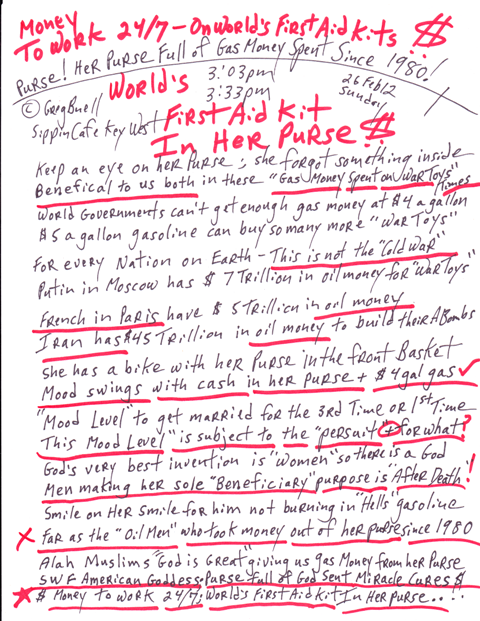 Money
To Work 24/7 - On World's First Aid Kits $
Purse! Her Purse Full of Gas Money Spent Since 1980!
World's
3:03pm
3:33pm
26 Feb 12
Sunday
© Greg Buell
Sippin Cafe Key West
First Aid Kit
In Her Purse $
Keep an eye on her Purse; she forgot something inside
Benefical to us both in these "Gas Money Spent on War Toys" Times
World Governments can't get enough gas money at $4 a gallon
$5 a gallon gasoline can buy so many more "War Toys"
For every Nation on Earth - This is not the "Cold War"
Putin in Moscow has $7 Trillion in oil money for "War Toys"
French in Paris have $5 Trillion in oil money
Iran has $45 Trillion in oil money to build their A Bombs
She has a bike with her Purse in the front Basket
Mood swings with cash in her purse + $4 gal gas ✓
"Mood Level" to get married for the 3rd Time or 1st Time
This Mood Level" is subject to the "persuit" + for what?
God's very best invention is "Women" so there is a God
Men making her sole "Beneficiary" purpose is "After Death"!
Smile on Her Smile for him not burning in "Hells" gasoline
X far as the "Oil Men" who took money out of her purse since 1980
Alah Muslims "God is Great" giving us gas Money from her Purse
SWF American Goddess Purse full of God sent Miracle Cures $
$ Money to Work 24/7; World's First Aid Kit In Her purse..!!